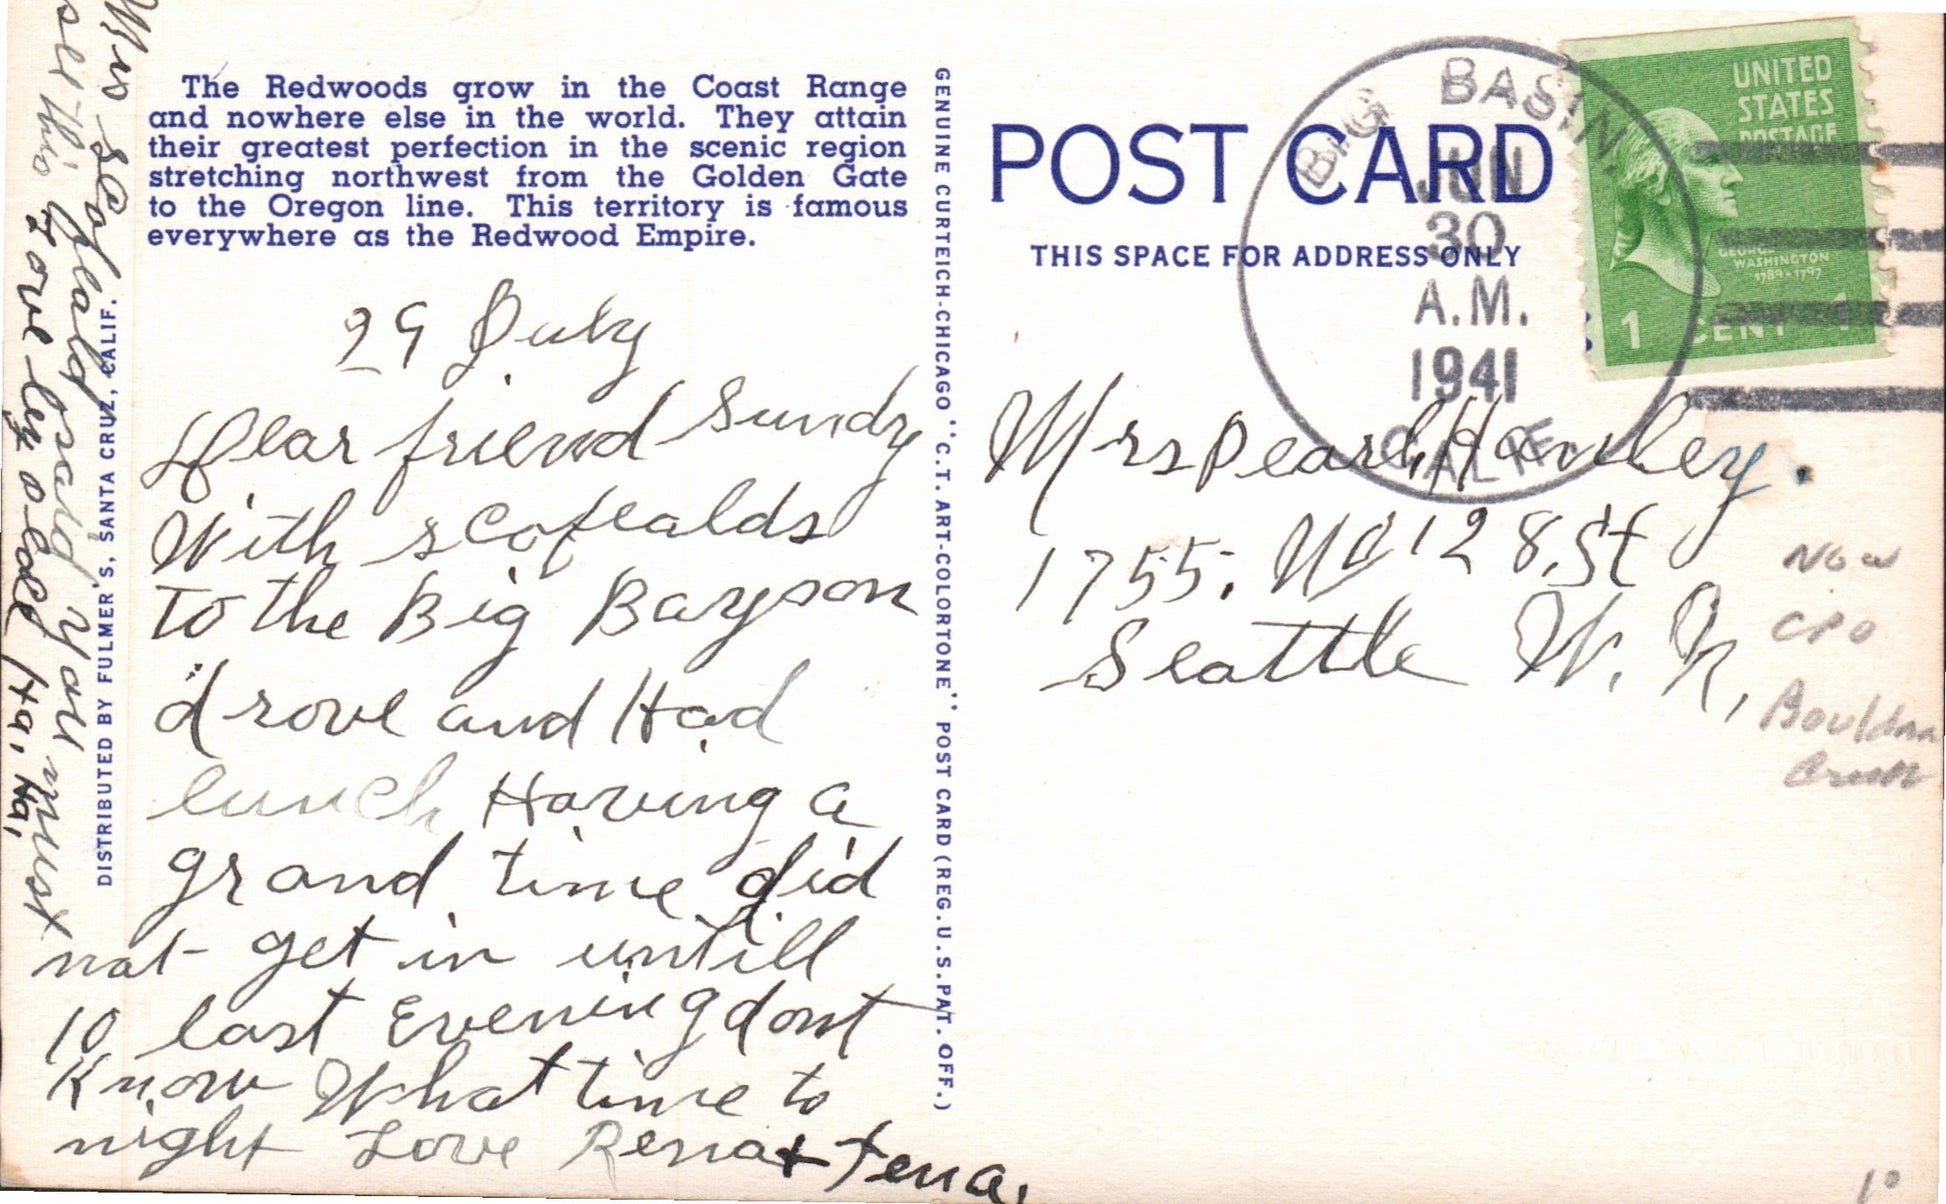 The Redwoods grow in the Coast Range
and nowhere else in the world. They attain
their greatest perfection in the scenic region
stretching northwest from the Golden Gate
to the Oregon line. This territory is famous
everywhere as the Redwood Empire.
29 July
Dear friend Sundy
With scofealds
to the Big Bayson
drove and Had
lunch Having a
grand time did
not get in untill
10 last Evening dont
Know What time to
night Love Rena + Tena.
Mrs Scofeald said you must
see this love ley old Ha, Ha,
DISTRIBUTED BY FULMER'S, SANTA CRUZ, CALIF.
GENUINE CURTEICH-CHICAGO "C.T. ART-COLORTONE" POST CARD (REG. U.S. PAT. OFF.)
POST CARD
THIS SPACE FOR ADDRESS ONLY
BIG BASIN,
JUN
30
A.M.
1941
CALIF.
UNITED
STATES
POSTAGE
GEORGE
WASHINGTON
1789-1797
1 CENT 1
Mrs Pearl Hanley.
1755. No 128. St
Seattle W. N,
Now
CPO
Bouldnn
Creek
10